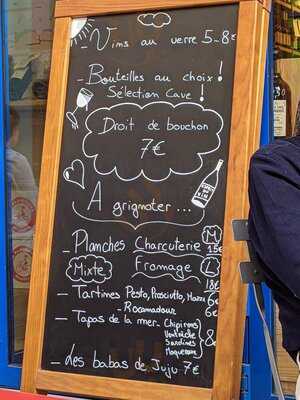 - Vins au verre 5-8€
- Bouteilles au choix !
Sélection Cave !
Droit de bouchon
7€
A grignoter...
- Planches Charcuterie M 15€
Mixte Fromage L 18€
- Tartines Pesto, Prosciutto, Mozza 6€
- Rocamadour 6€
- Tapas de la mer - Chipirons
Ventrèche
Sardines
Maquereau
8€
- Les babas de Juju 7€